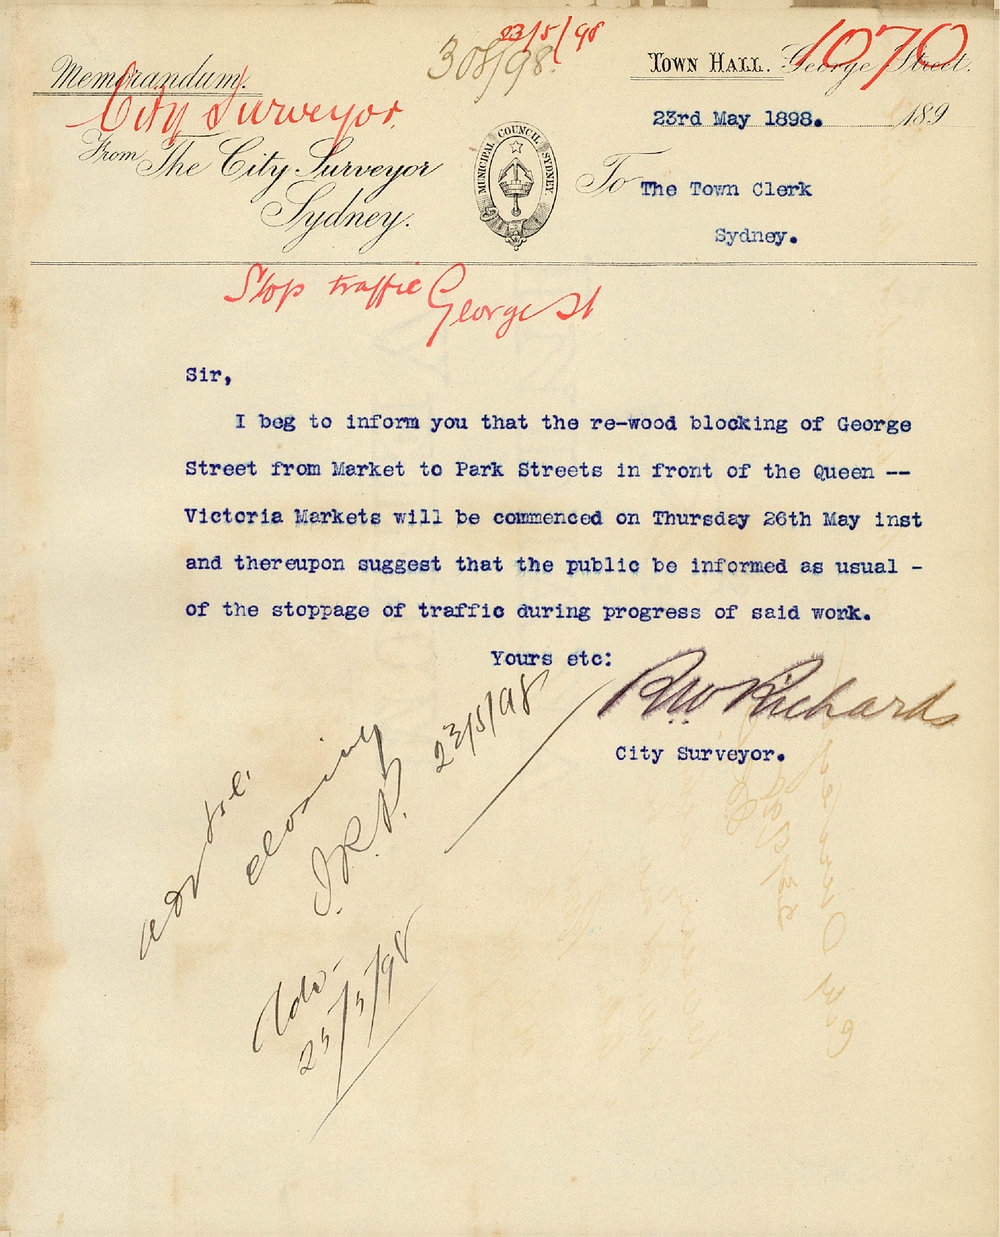 23/5/98
308/98
1070
Memorandum.
TOWN HALL. George Street.
City Surveyor.
23rd May 1898. 189
From The City Surveyor
Sydney.
MUNICIPAL COUNCIL SYDNEY
To The Town Clerk
Sydney.
Stop traffic George St
Sir,
I beg to inform you that the re-wood blocking of George
Street from Market to Park Streets in front of the Queen --
Victoria Markets will be commenced on Thursday 26th May inst
and thereupon suggest that the public be informed as usual -
of the stoppage of traffic during progress of said work.
Yours etc:
RW Richards
City Surveyor.
closing
23/5/98
25/5/98